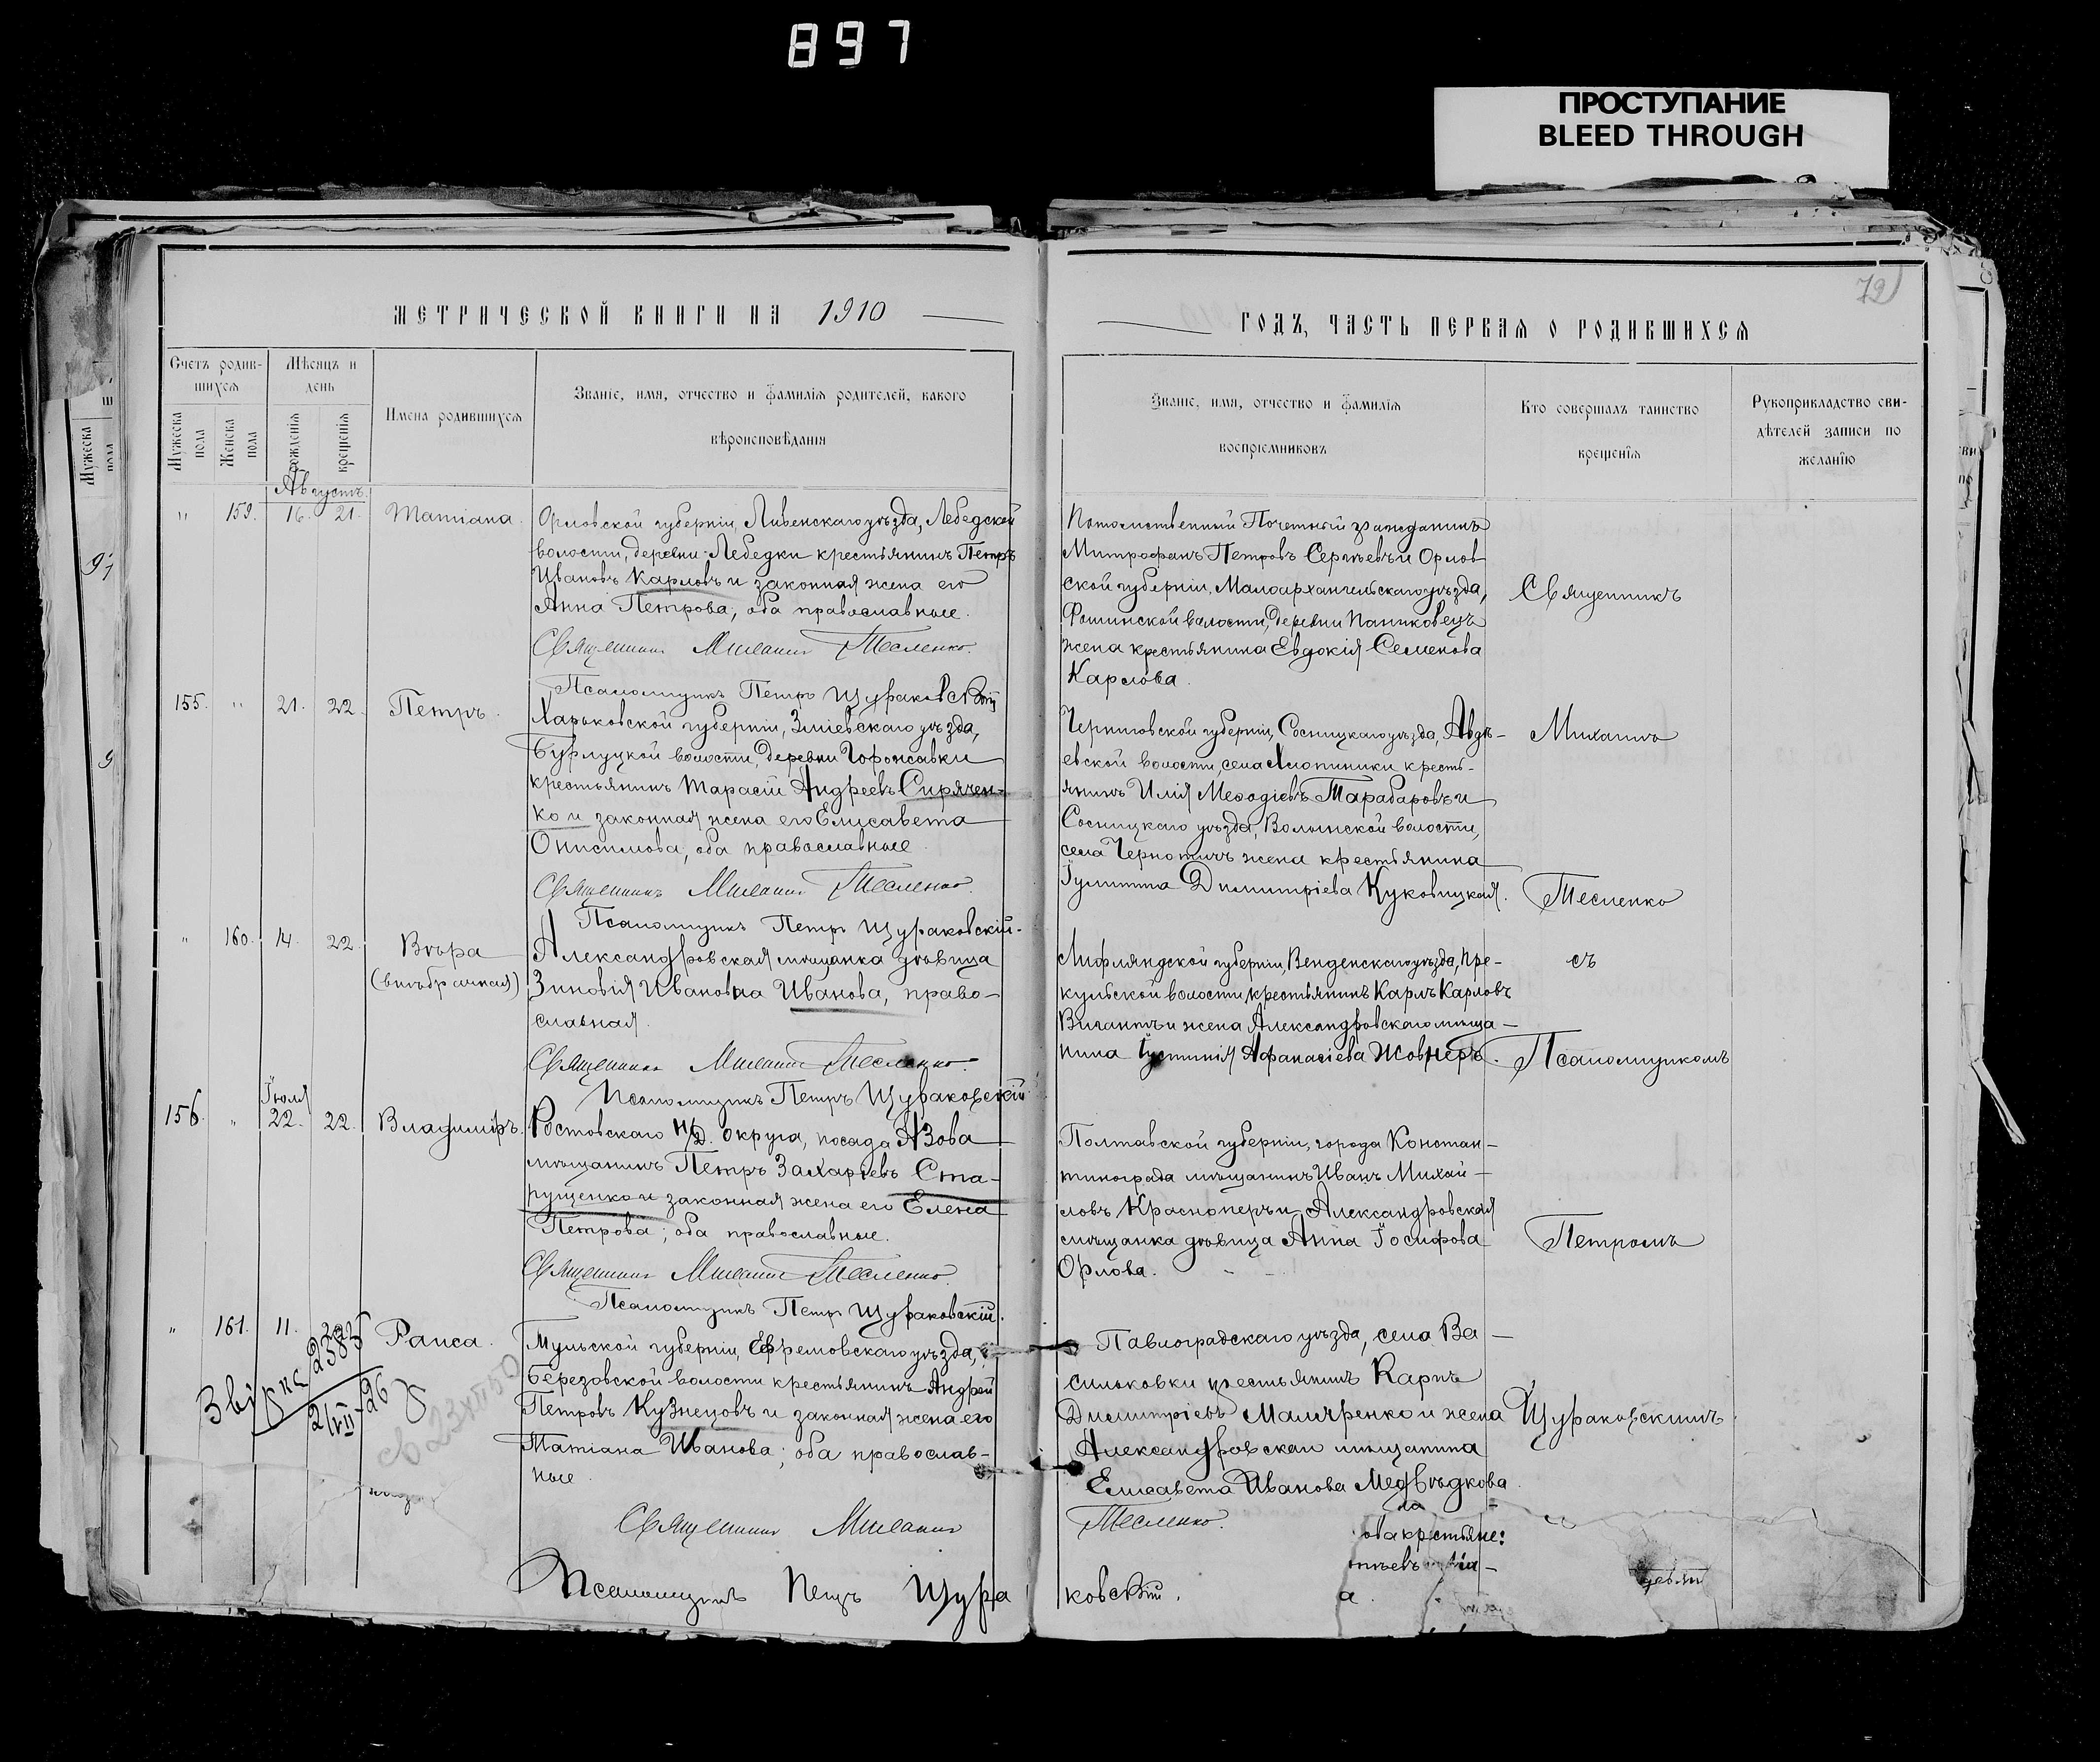 897
ПРОСТУПАНИЕ
BLEED THROUGH
72
МЕТРИЧЕСКОЙ КНИГИ НА 1910
ГОДЪ, ЧАСТЬ ПЕРВАЯ О РОДИВШИХСЯ
Счетъ родив-
шихся
Мѣсяцъ и
день
Мужеска
пола
Женска
пола
рожденія
крещенія
Имена родившихся
Званіе, имя, отчество и фамилія родителей, какого
вѣроисповѣданія
Званіе, имя, отчество и фамилія
воспріемниковъ
Кто совершалъ таинство
крещенія
Рукоприкладство сви-
дѣтелей записи по
желанію
Августъ
" 159. 16. 21. Татіана.
Орловской губерніи, Ливенскаго уѣзда, Лебедской
волости, деревни Лебедки крестьянинъ Петръ
Ивановъ Карловъ и законная жена его
Анна Петрова, оба православные.
Священникъ Михаилъ Тесленко.
Псаломщикъ Петръ Щураковскій
Потомственный Почетный гражданинъ
Митрофанъ Петровъ Сергѣевъ и Орлов
ской губерніи, Малоархангельскаго уѣзда,
волости, деревни Паниковецъ
жена крестьянина Евдокія Семенова
Карлова.
155. " 21. 22. Петръ.
Харьковской губерніи, Зміевскаго уѣзда,
Бурлуцкой волости, деревни
крестьянинъ Тарасій Андреевъ Сирячен-
ко и законная жена его Елисавета
Онисимова, оба православные.
Священникъ Михаилъ Тесленко.
Псаломщикъ Петръ Щураковскій.
Черниговской губерніи, Сосницкаго уѣзда, Авдѣ-
евской волости, села кресть-
янинъ Илія Меѳодіевъ Тарабаровъ и
Сосницкаго уѣзда, Волынской волости,
села Чернотичъ жена крестьянина
Іулитта Димитріева Куковицкая.
" 160. 14. 22. Вѣра
(внѣбрачная)
Александровская мѣщанка дѣвица
Зиновія Ивановна Иванова, право-
славная.
Священникъ Михаилъ Тесленко.
Псаломщикъ Петръ Щураковскій
Лифляндской губерніи, Венденскаго уѣзда, Пре-
кульской волости, крестьянинъ Карлъ Карловъ
Вигантъ и жена Александровскаго мѣща-
нина Іустинія Афанасіева Жовнеръ.
Іюля
156. " 22. 22. Владиміръ.
Ростовскаго н/Д. округа, посада Азова
мѣщанинъ Петръ Захаріевъ Ста-
рущенко и законная жена его Елена
Петрова; оба православные.
Священникъ Михаилъ Тесленко.
Псаломщикъ Петръ Щураковскій.
Полтавской губерніи, города Констан-
тинограда мѣщанинъ Иванъ Михай-
ловъ Красноперъ и Александровская
мѣщанка дѣвица Анна Іосифова
Орлова.
" 161. 11. Раиса.
Тульской губерніи, Ефремовскаго уѣзда,
Березовской волости крестьянинъ Андрей
Петровъ Кузнецовъ и законная жена его
Татіана Иванова; оба православ-
ные.
Павлоградскаго уѣзда, села Ва-
сильковки крестьянинъ Карпъ
Димитріевъ и жена
Александровскаго мѣщанина
Елисавета Иванова Медвѣдкова.
Священникъ Михаилъ Тесленко.
Псаломщикъ Петръ Щураковскій.
Священникъ
Михаилъ
Тесленко
съ
Псаломщикомъ
Петромъ
Щураковскимъ.
2385
2/VII-26